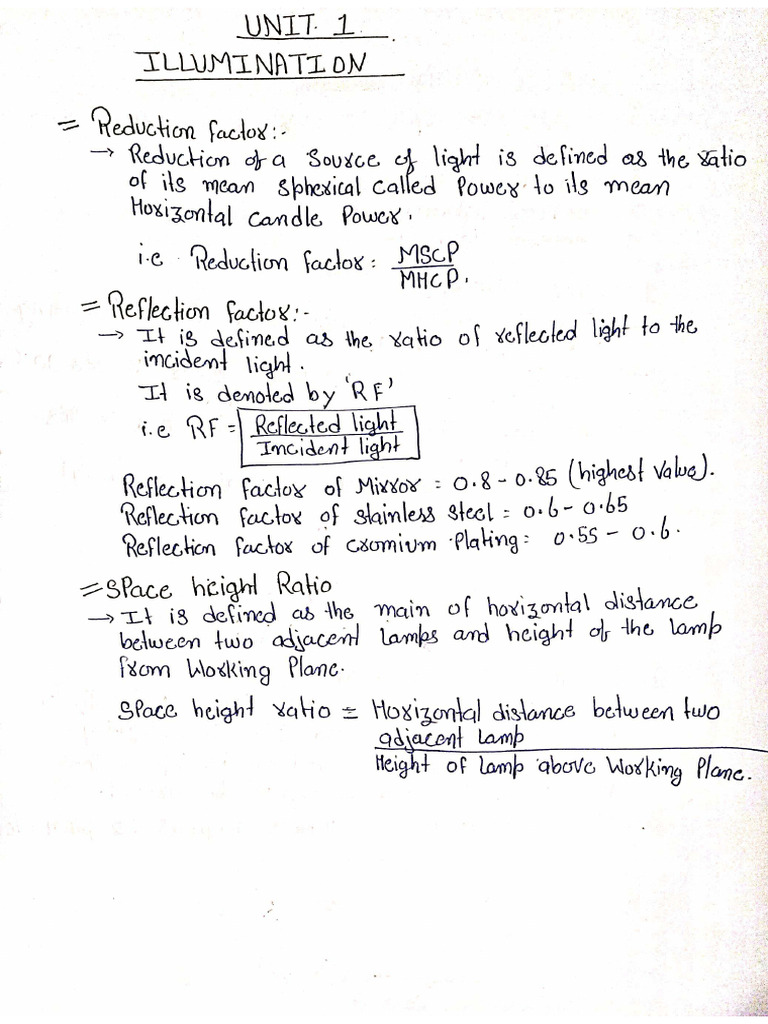 UNIT. 1
ILLUMINATION
= Reduction factor:-
→ Reduction of a source of light is defined as the ratio
of its mean spherical called Power to its mean
Horizontal candle Power.
i.e Reduction factor: MSCP
MHCP.
= Reflection factor:-
→ It is defined as the ratio of reflected light to the
incident light.
It is denoted by 'RF'
i.e RF = Reflected light
Incident light
Reflection factor of Mirror = 0.8 - 0.85 (highest value).
Reflection factor of stainless steel = 0.6 - 0.65
Reflection factor of cromium Plating: 0.55 - 0.6.
= Space height Ratio
→ It is defined as the main of horizontal distance
between two adjacent lamps and height of the lamp
from Working Plane.
Space height ratio = Horizontal distance between two
adjacent lamp
Height of lamp above Working Plane.